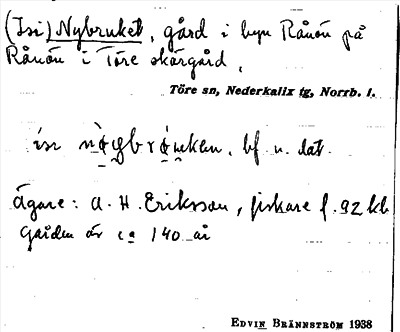 (Isi) Nybruket, gård i byn Rånön på
Rånön i Töre skärgård.
Töre sn, Nederkalix tg, Norrb. l.
bf. n. dat.
Ägare: A. H. Eriksson, fiskare f. 92 kb
Gården är ca 140 år
EDVIN BRÄNNSTRÖM 1938